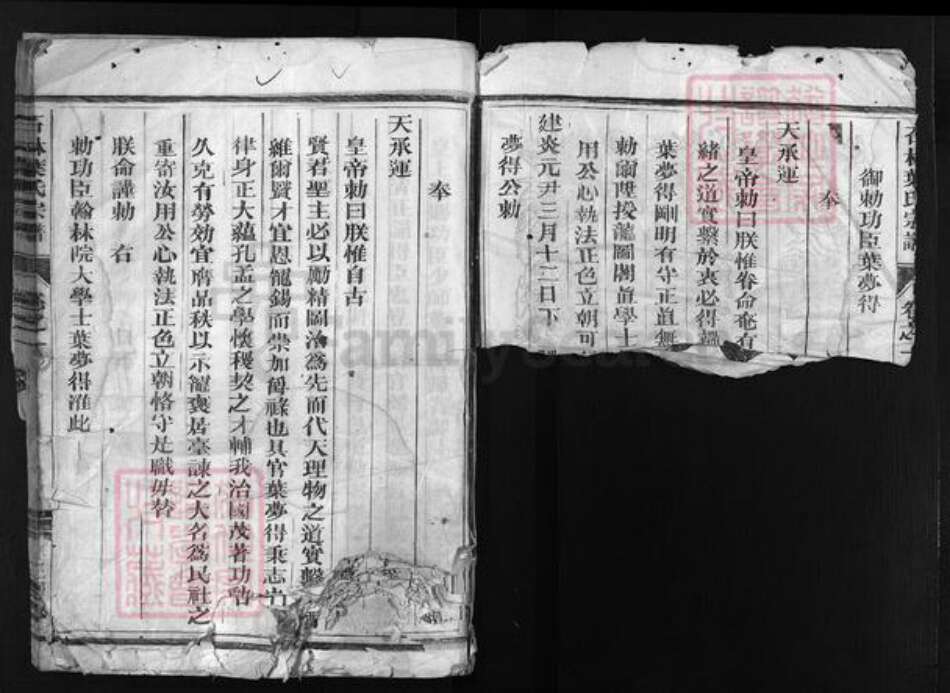 石林葉氏宗譜 卷之一
御勅功臣葉夢得
奉
天承運
皇帝勅曰朕惟眷命奄有
緒之道實繫於衷必得
葉夢得剛明有守正直無
勅爾陞授龍圖閣直學士
用公心執法正色立朝可
建炎元尹三月十二日下
夢得公勅
奉
天承運
皇帝勅曰朕惟自古
賢君聖主必以勵精圖治為先而代天理物之道實繫
雖爾賢才宜恩寵錫而崇加爵祿也具官葉夢得秉志
律身正大蘊孔孟之學懷稷契之才輔我治國茂著功
久克有勞効宜膺品秩以示寵褒居臺諫之大名為民社之
重寄汝用公心執法正色立朝恪守是職毋替
朕命謹勅 右
勅功臣翰林院大學士葉夢得准此
石林葉氏宗譜